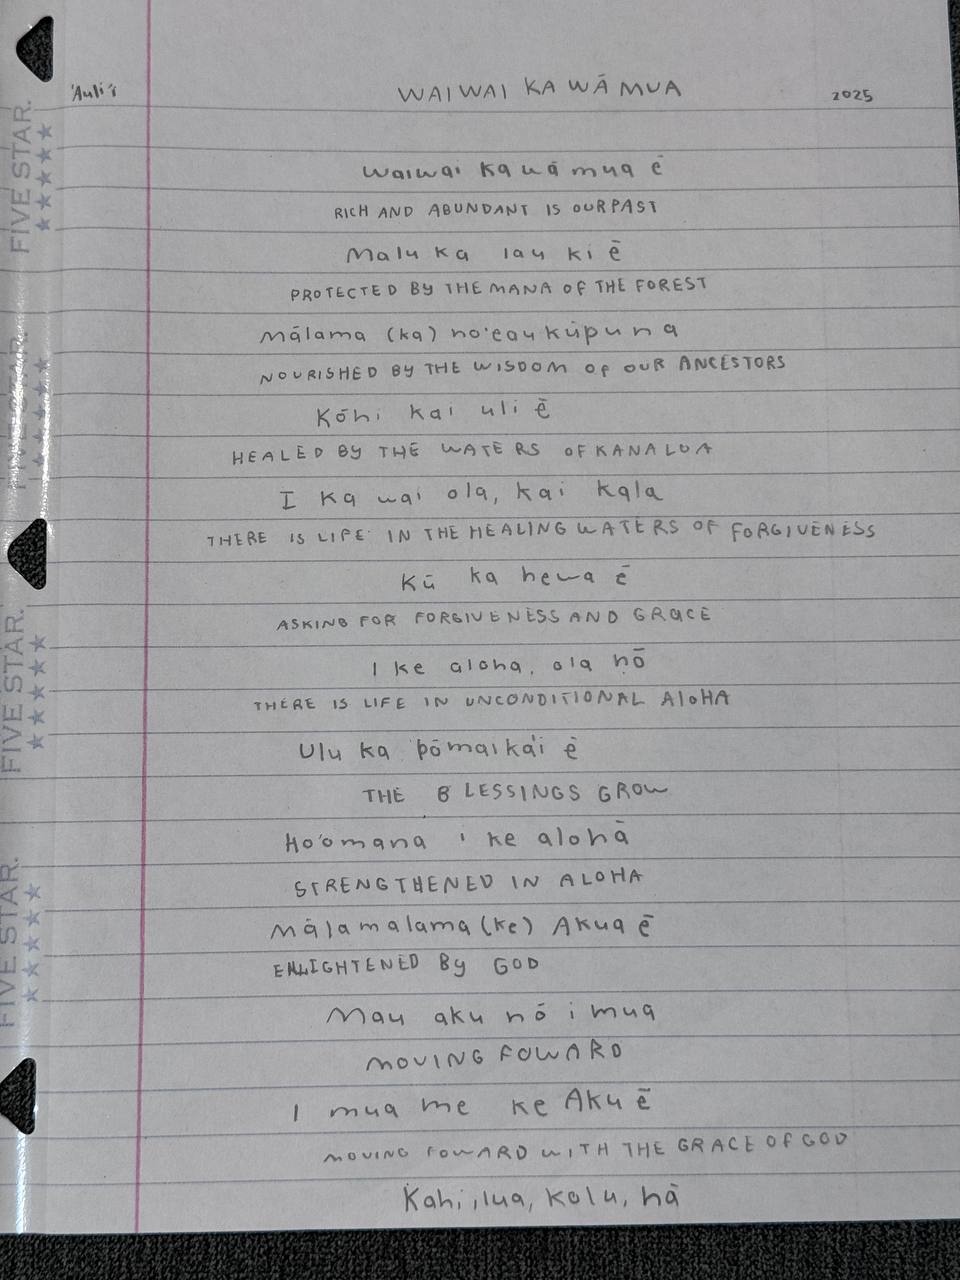 'Auli'i WAIWAI KA WĀ MUA 2025
Waiwai ka wā mua ē
RICH AND ABUNDANT IS OUR PAST
Malu ka lau ki ē
PROTECTED BY THE MANA OF THE FOREST
Mālama (ka) no'eau kūpuna
NOURISHED BY THE WISDOM OF OUR ANCESTORS
Kōhi kai uli ē
HEALED BY THE WATERS OF KANALOA
I ka wai ola, kai kala
THERE IS LIFE IN THE HEALING WATERS OF FORGIVENESS
Kū ka hewa ē
ASKING FOR FORGIVENESS AND GRACE
I ke aloha, ola nō
THERE IS LIFE IN UNCONDITIONAL ALOHA
Ulu ka pōmaika'i ē
THE BLESSINGS GROW
Ho'omana i ke alohā
STRENGTHENED IN ALOHA
Mālamalama (ke) Akua ē
ENLIGHTENED By GOD
Mau aku nō i mua
MOVING FOWARD
I mua me ke Aku ē
MOVING FOWARD WITH THE GRACE OF GOD
Kahi, lua, kolu, hā
FIVE STAR.
FIVE STAR.
FIVE STAR.
FIVE STAR.